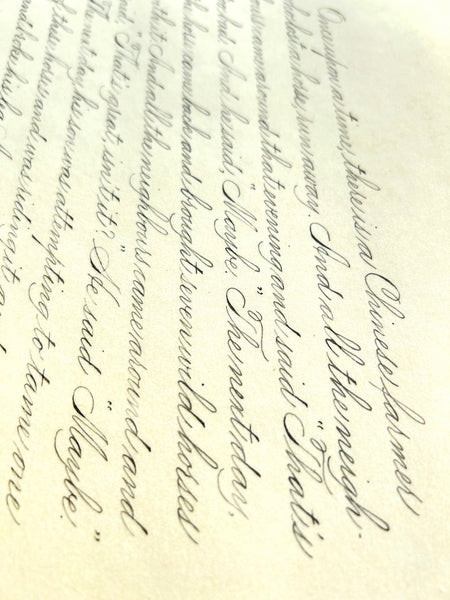 Once upon a time, there is a Chinese farmer
lost a horse, ran away. And all the neigh-
bours came around that evening and said "That's
too bad." And he said, "Maybe." The next day,
the horse came back and bought seven wild horses
with it. And all the neighbours came around and
said, "That's great, isn't it?" He said "Maybe."
The next day, his son was attempting to tame one
of these horses and was riding it and
and broke his leg